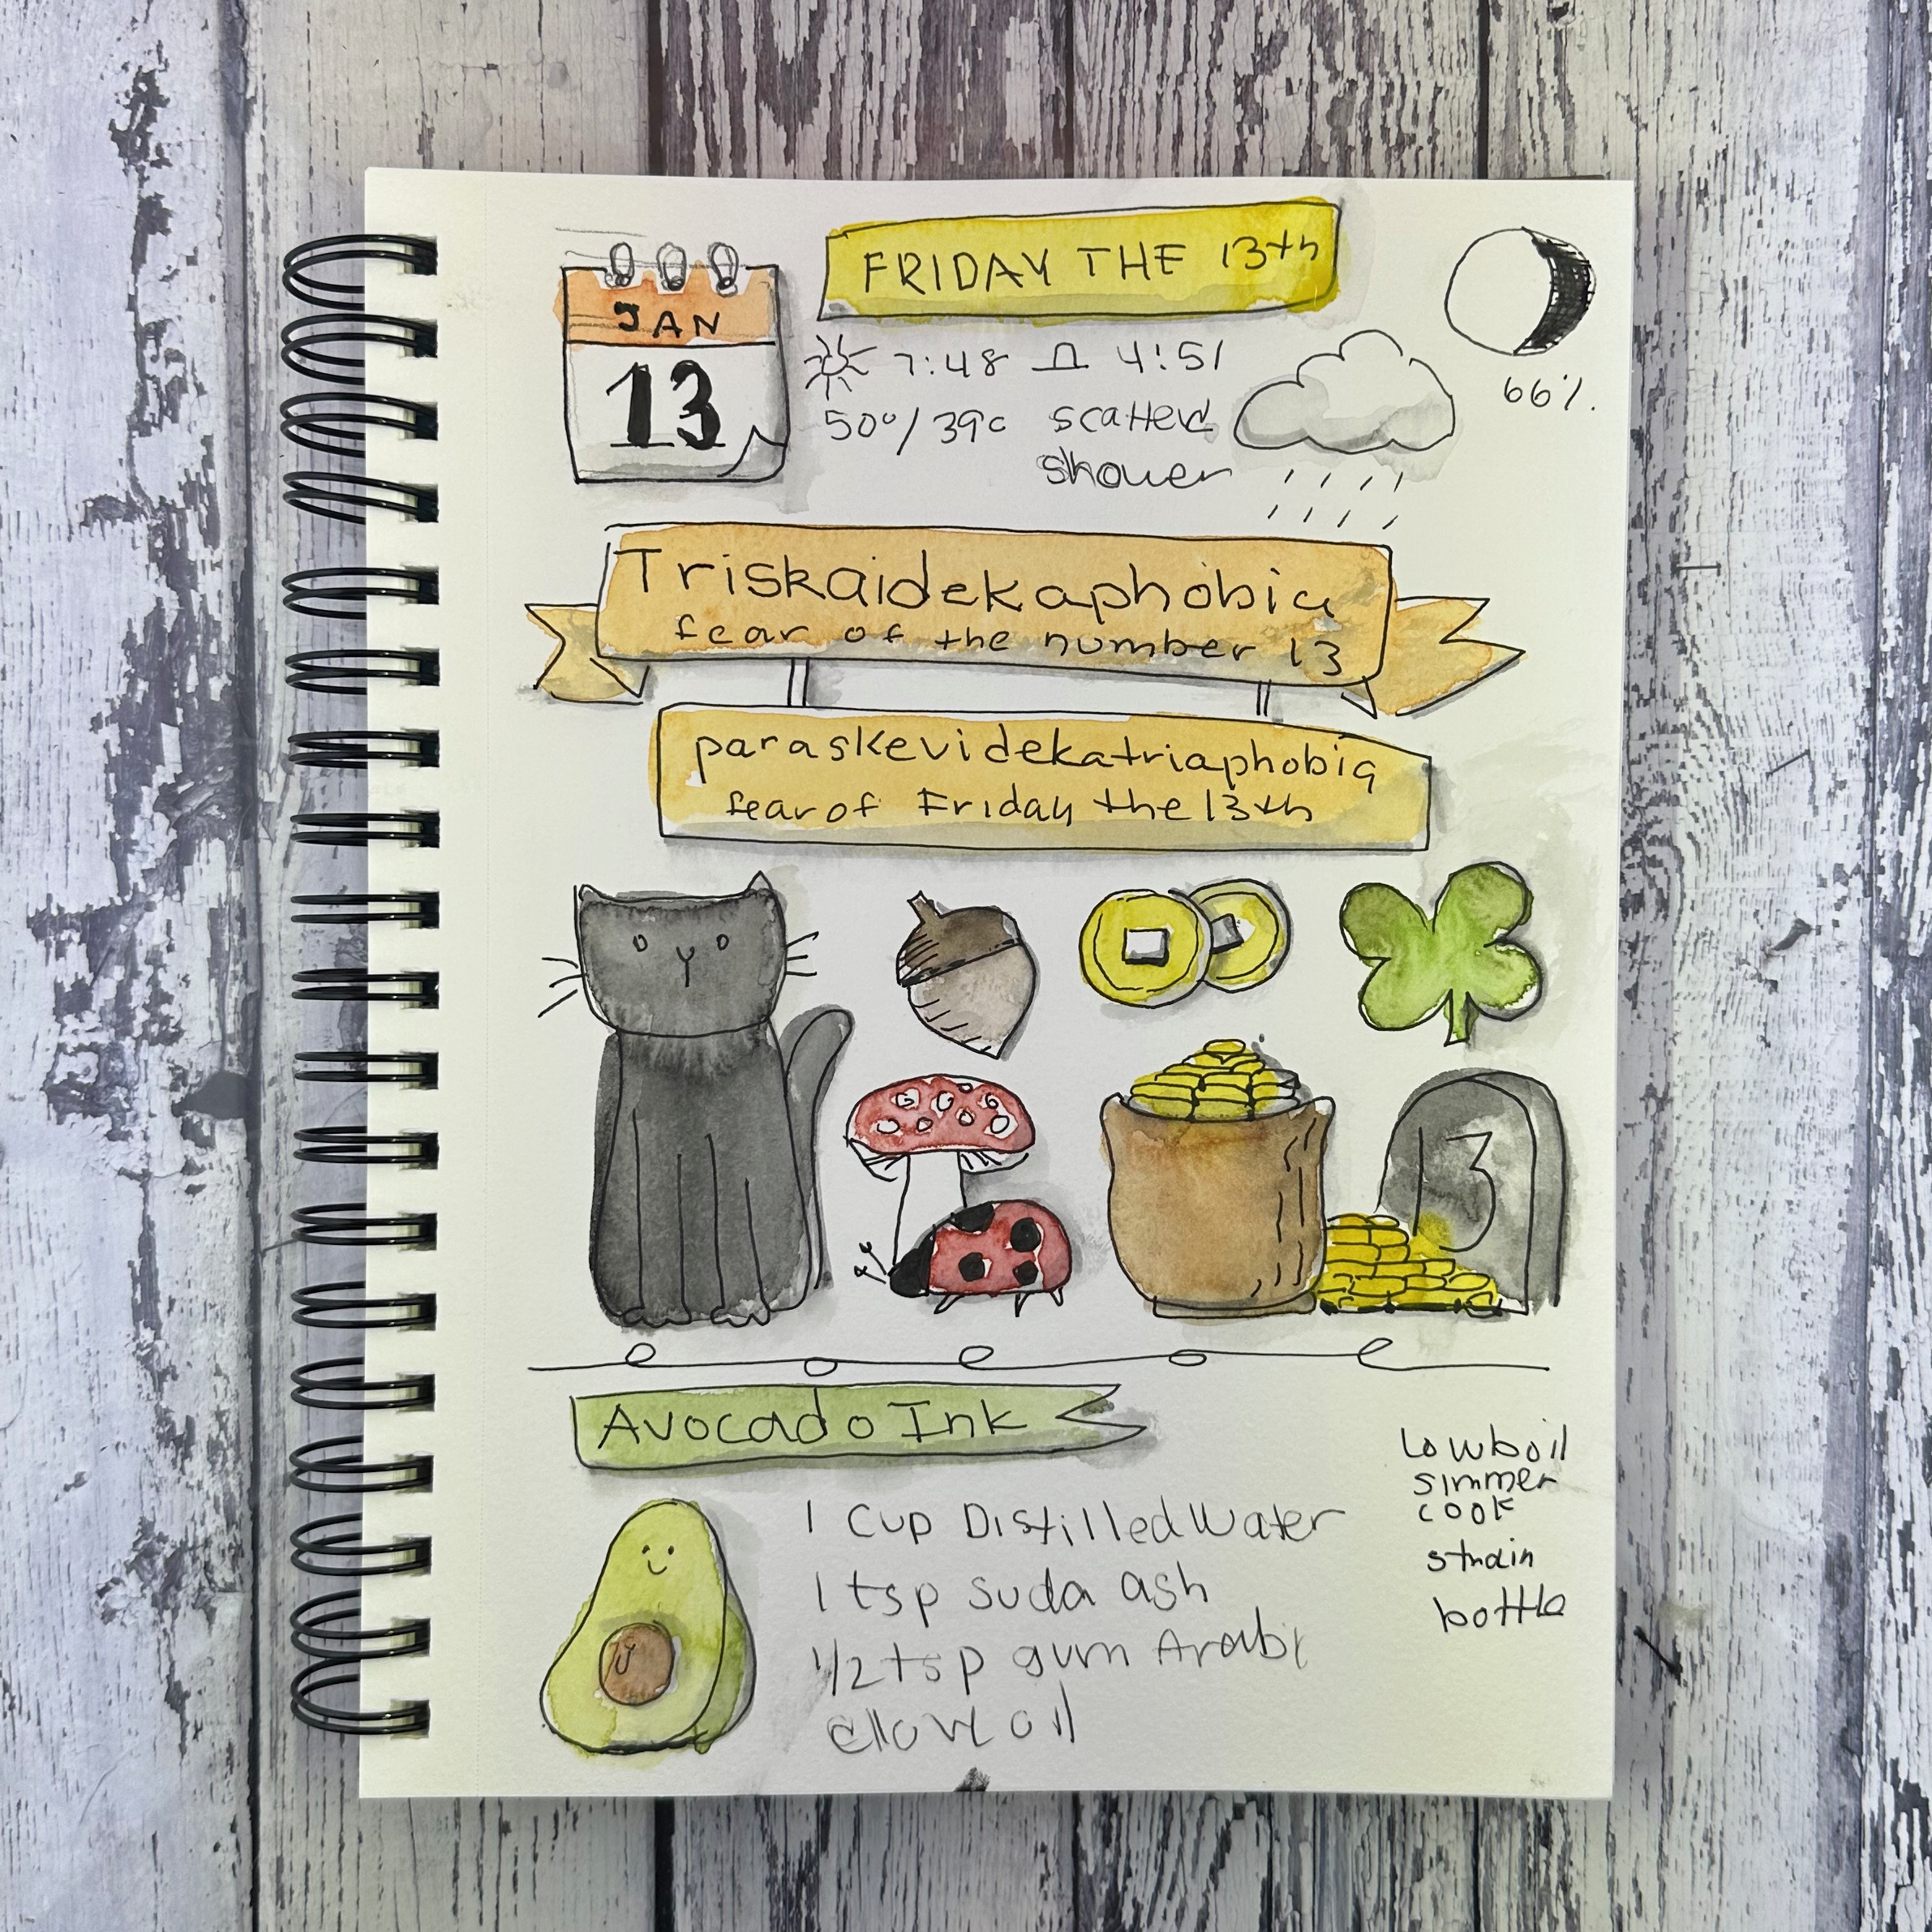 JAN
13
FRIDAY THE 13th
7:48 4:51
50°/39° scatterd
shower
66%.
Triskaidekaphobia
fear of the number 13
paraskevidekatriaphobia
fear of Friday the 13th
13
Avocado Ink
1 Cup Distilled Water
1 tsp suda ash
1/2 tsp gum Arabi
clove oil
Low boil
simmer
cook
strain
bottle